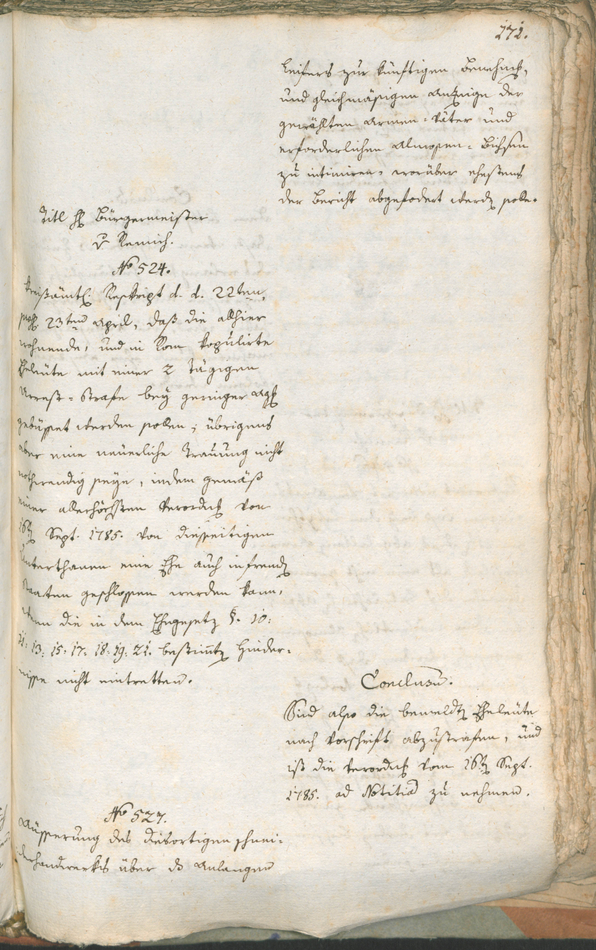 272.
leiters zur künftigen Benehmb,
und gleichmäßigen Anzeige der
gewählten Armen-Väter und
erforderlichen Almosen-Büchsen
zu intimiren, worüber ehestens
der Bericht abgefodert werdn solle.
Titl H Bürgermeister
v Remich.
No 524.
Kreißämtl Reskript d. d. 22ten,
23ten April, daß die allhier
wohnende, und in Rom kopulirte
Eheleüte mit einer 2 tägigen
Arrest-Strafe bey geringer
gebüsset werden sollen; übrigens
aber eine neüerliche Trauung nicht
nothwendig seye, indem gemäß
einer allerhöchsten Verordng von
16tn Sept. 1785. von diesseitigen
Unterthanen eine Ehe auch in fremdn
Staaten geschlossen werden kann,
wenn die in dem Ehegesetz §. 10:
11: 13: 15: 17: 18: 19: 21. bestimtn Hinder-
nisse nicht eintretten.
Conclusũ.
Sind also die bemeldtn Eheleüte
nach Vorschrift abzustrafen, und
ist die Verordng vom 16tn Sept.
1785. ad Notitiã zu nehmen.
No 527.
Äusserung des dievortigen Schnei-
derhandwerks über ds Anlangen